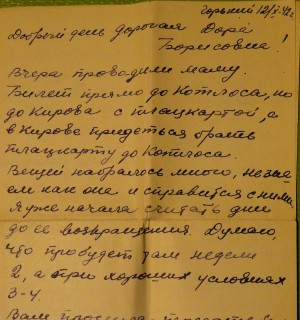 Горький 12/X-42г.
Добрый день дорогая Дора
Борисовна!
Вчера проводили маму.
Билет прямо до Котласа, но
до Кирова с плацкартой, а
в Кирове придеться брать
плацкарту до Котласа.
Вещей набралось много, незна-
ем как она и справится с ними
Я уже начала считать дни
до ее возвращения. Думаю,
что пробудет там недели
2, а при хороших условиях
3-4.
Вам просила передать